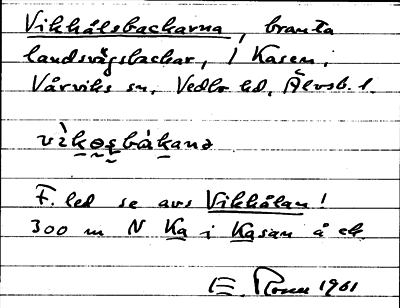 Vikhålsbackarna, branta
landsvägsbackar, i Kasen,
Vårviks sn, Vedbo hd, Älvsb. l.
F. led se avs Vikhålan!
300 m N Ka i Kasan å ek
E. 1961